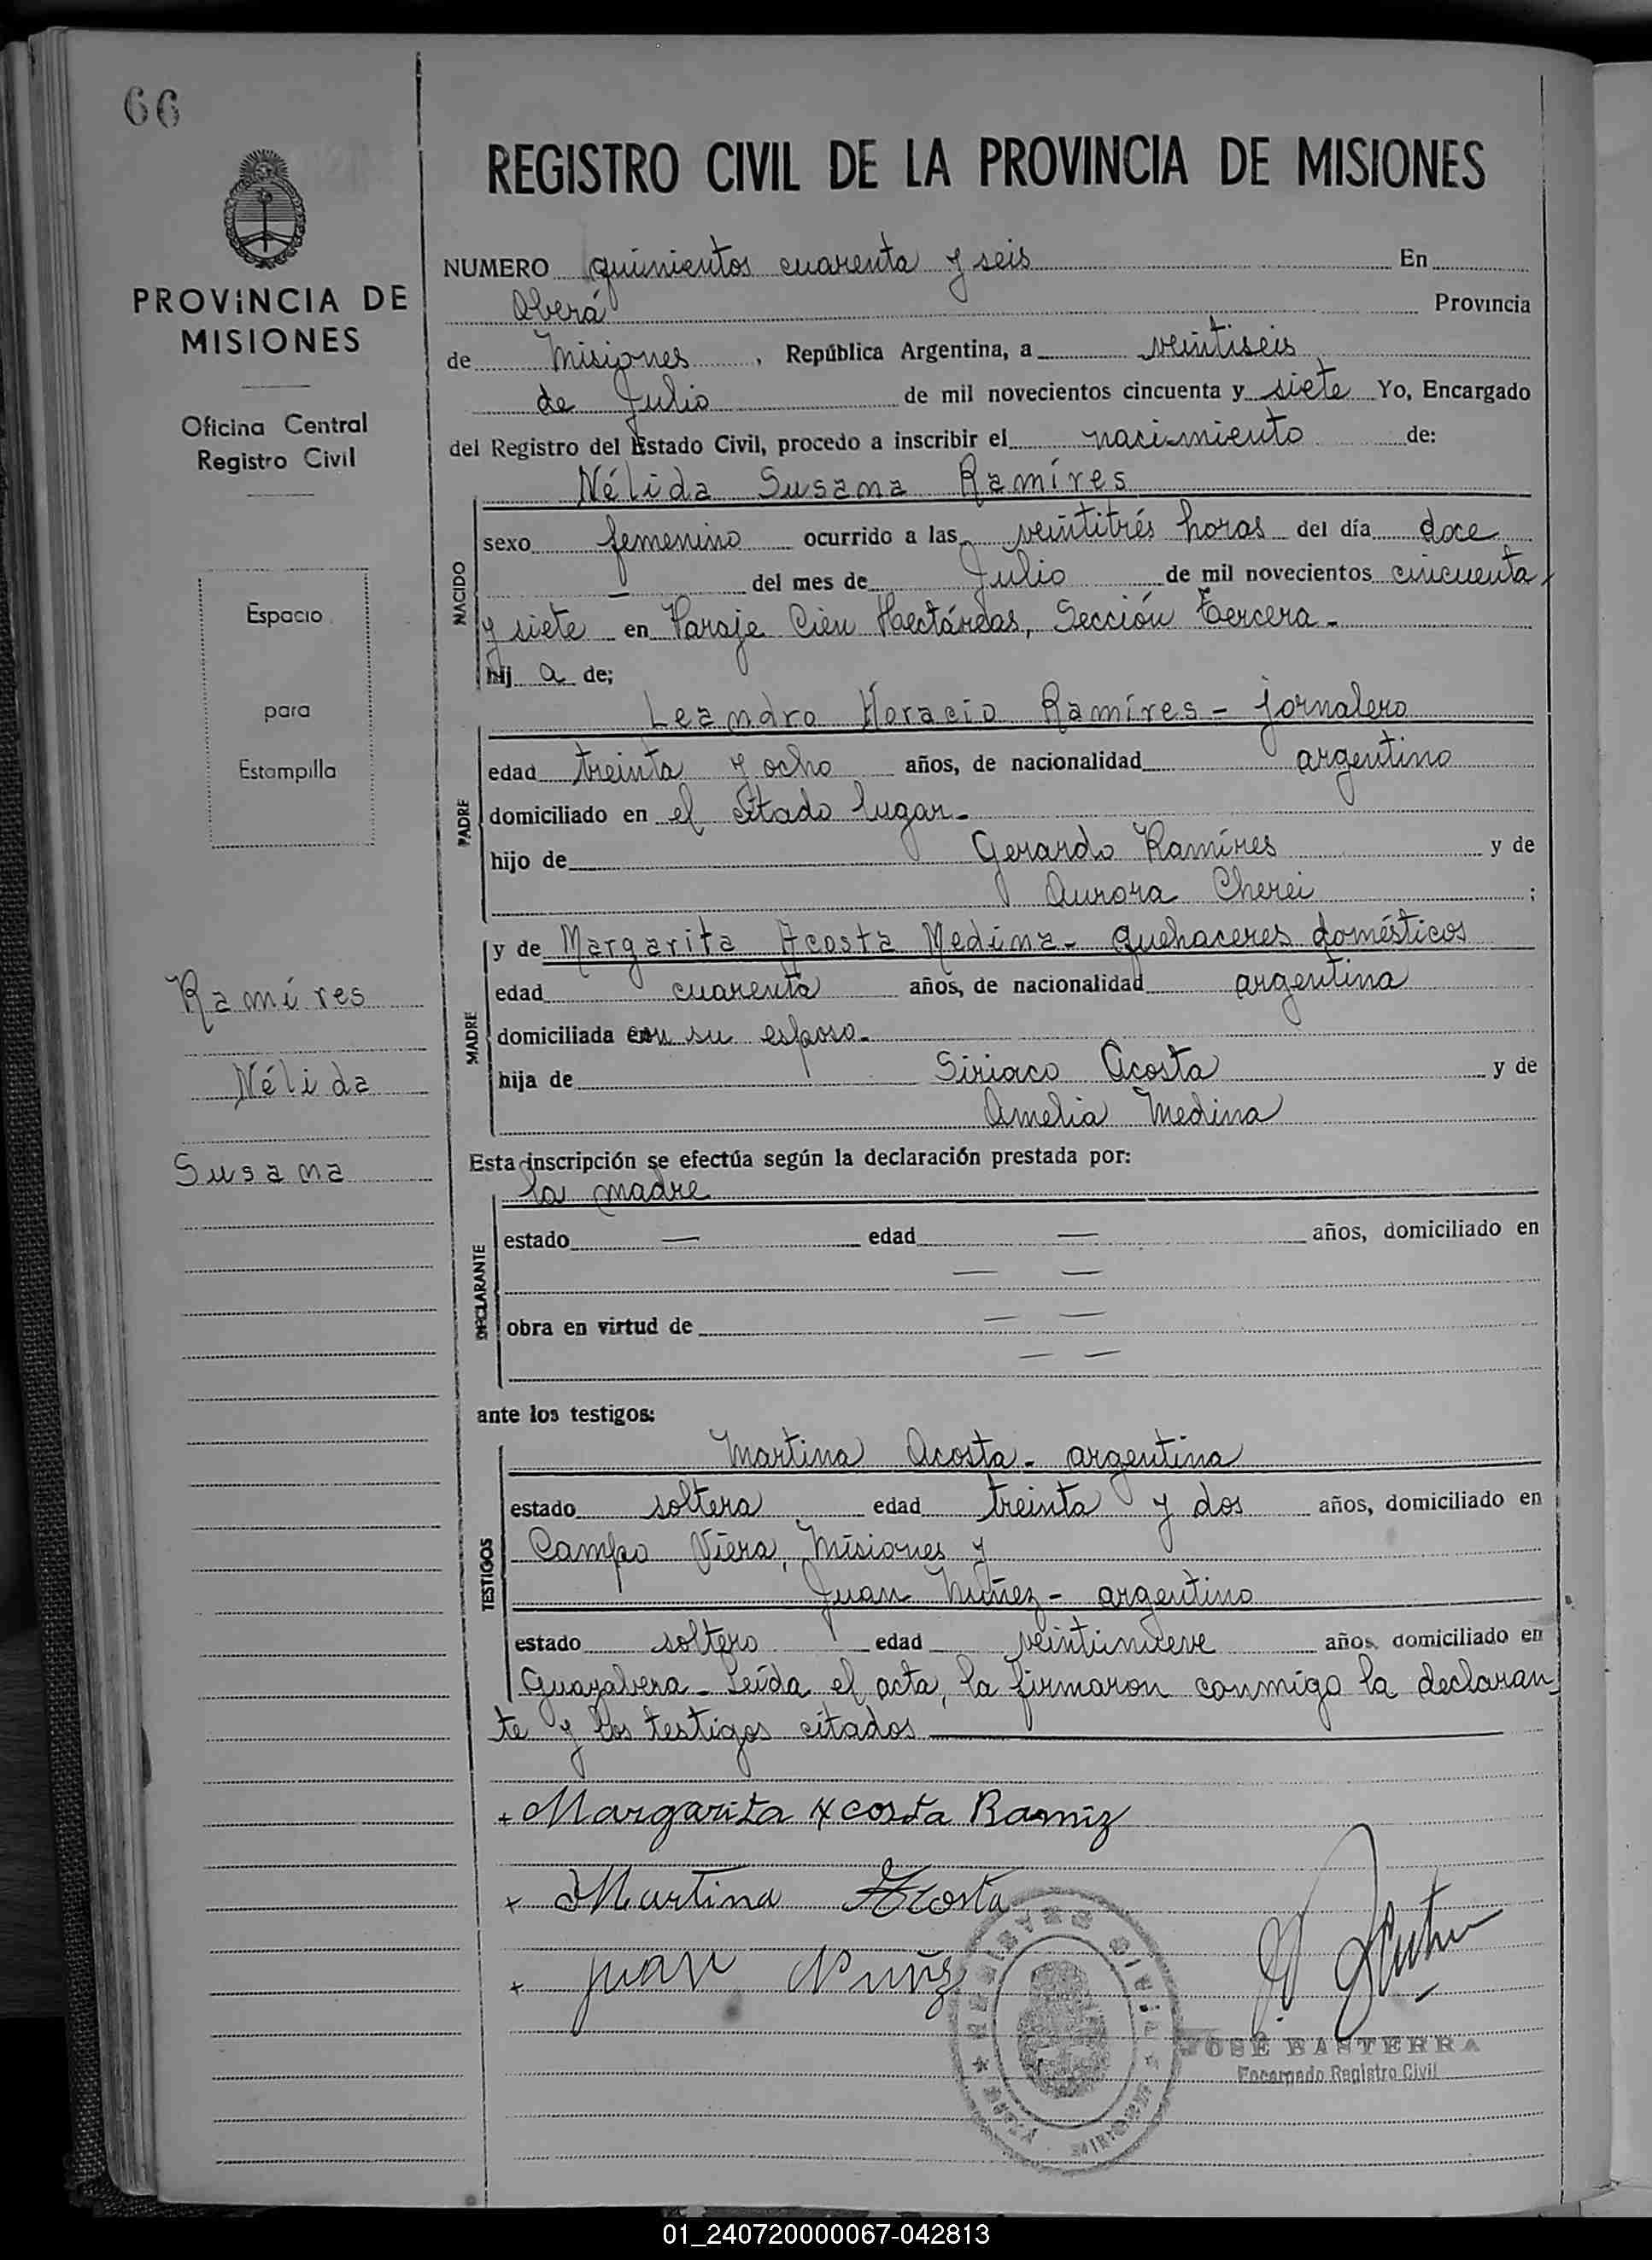 66
REGISTRO CIVIL DE LA PROVINCIA DE MISIONES
PROVINCIA DE
MISIONES
Oficina Central
Registro Civil
Espacio
para
Estampilla
Ramíres
Nélida
Susana
NUMERO quinientos cuarenta y seis En
Oberá Provincia
de Misiones, República Argentina, a veintiseis
de Julio de mil novecientos cincuenta y siete Yo, Encargado
del Registro del Estado Civil, procedo a inscribir el nacimiento de:
Nélida Susana Ramíres
NACIDO
sexo femenino ocurrido a las veintitrés horas del día doce
— del mes de Julio de mil novecientos cincuenta
y siete en Paraje Cien Hectáreas, Sección Tercera.-
hij a de;
PADRE
Leandro Horacio Ramíres - jornalero
edad treinta y ocho años, de nacionalidad argentino
domiciliado en el citado lugar.-
hijo de Gerardo Ramíres y de
Aurora Cherei ;
MADRE
y de Margarita Acosta Medina - quehaceres domésticos
edad cuarenta años, de nacionalidad argentina
domiciliada con su esposo.-
hija de Siriaco Acosta y de
Amelia Medina
Esta inscripción se efectúa según la declaración prestada por:
DECLARANTE
la madre
estado — edad — años, domiciliado en
— —
obra en virtud de — —
— —
ante los testigos:
TESTIGOS
Martina Acosta - argentina
estado soltera edad treinta y dos años, domiciliado en
Campo Viera, Misiones y
Juan Nuñez - argentino
estado soltero edad veintinueve años, domiciliado en
Guayabera - Leída el acta, la firmaron conmigo la declaran
te y los testigos citados
+ Margarita Acosta Ramiz
+ Martina Acosta
+ Juan Nuñz
REGISTRO CIVIL
MISIONES
JOSÉ BASTERRA
Encargado Registro Civil
01_240720000067-042813